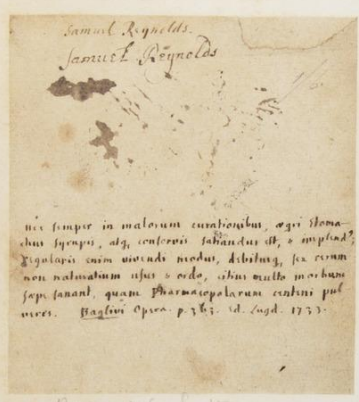 Samuel Reynolds.
Samuel Reynolds
nec semper in malorum curationibus, ægri stoma-
chus syrupis, atq; conservis satiandus est, &
regularis enim vivendi modus, debitusq; sex rerum
non naturalium usus & ordo, citius multo morbum
sæpe sanant, quam Pharmacopolarum centeni pul
veres. Baglivi Opera. p. 363. Ed. Lugd. 1733.